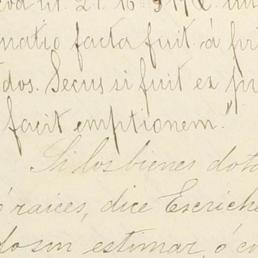 lit. 21. 16
matio facta fuit á pri
dos. Secus si fuit ex pr
facit emptionem."
Si los bienes dota
ó raices, dice Escriche
estimar, ó c